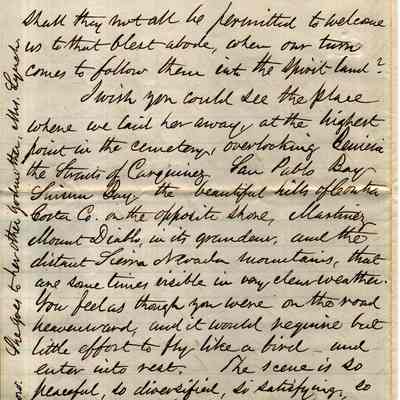 shall they not all be permitted to welcome
us to that blest abode, when our turn
comes to follow them into the spirit land?
I wish you could see the place
where we laid her away, at the highest
point in the cemetery, overlooking Benicia
the Straits of Carquinez San Pablo Bay
Suisun Bay the beautiful hills of Contra
Costa Co. on the opposite shore, Martinez
Mount Diablo, in its grandeur, and the
distant Sierra Nevada mountains, that
are some times visible in very clear weather.
You feel as though you were on the road
heavenward, and it would require but
little effort to fly like a bird and
enter into rest. The scene is so
peaceful, so diversified, so satisfying, so
She goes to her other godmother, Mrs. Lynch